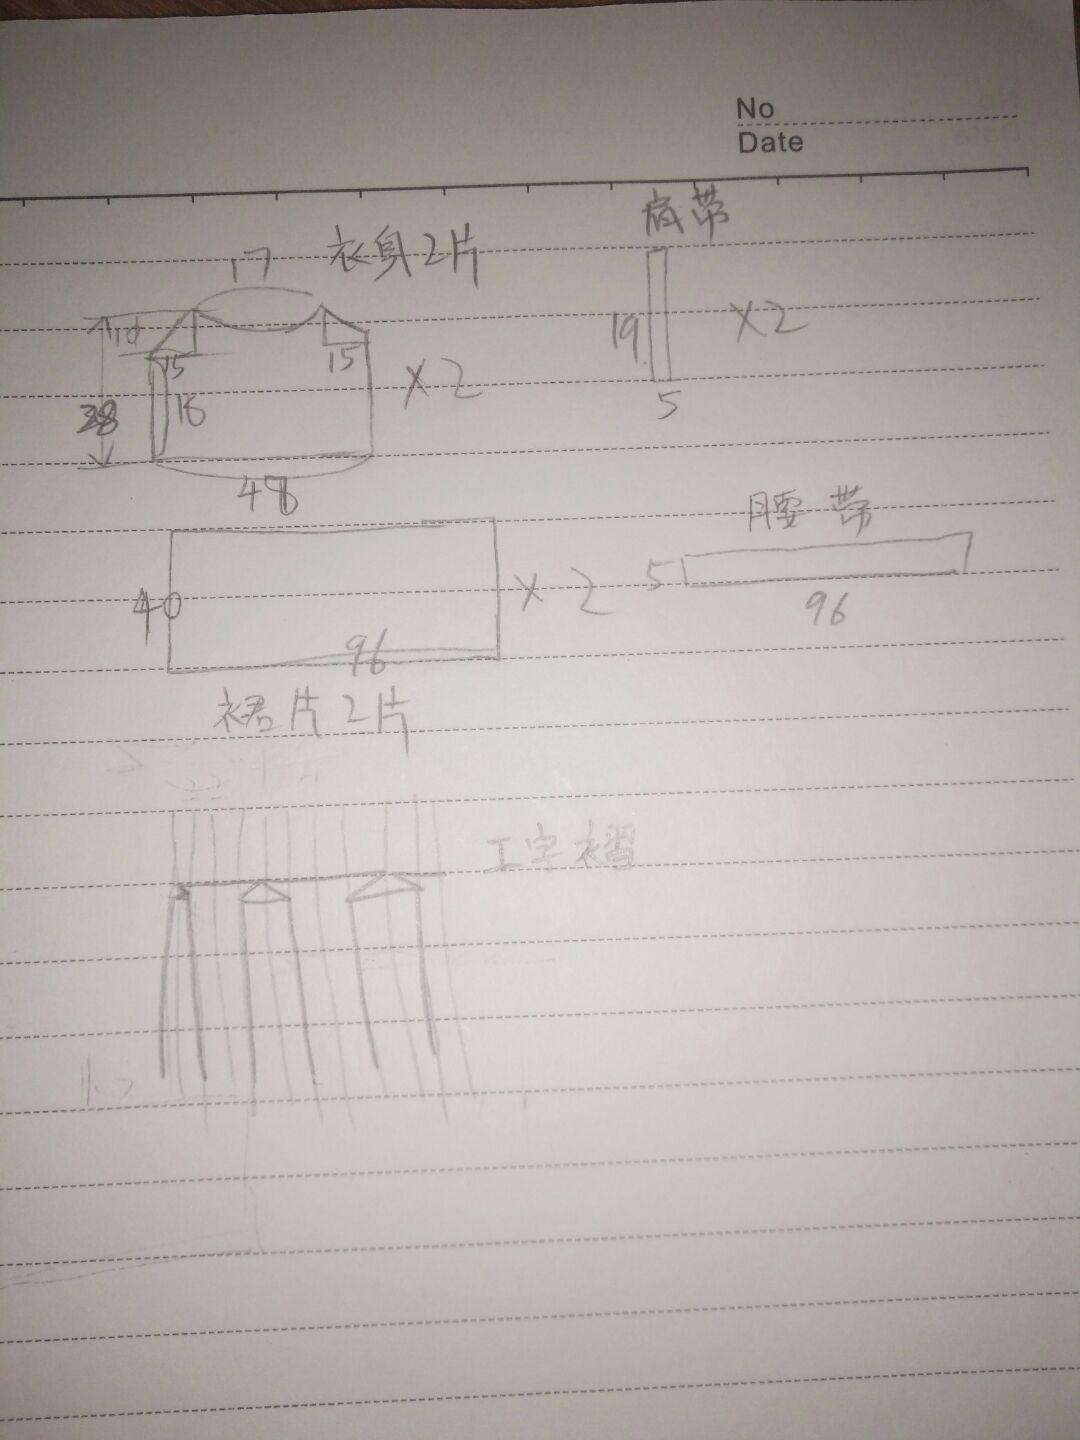 No
Date
肩带
17 衣身2片
10
15
15
×2
38
18
48
19
×2
5
腰带
40
×2
5
96
96
裙片2片
工字褶